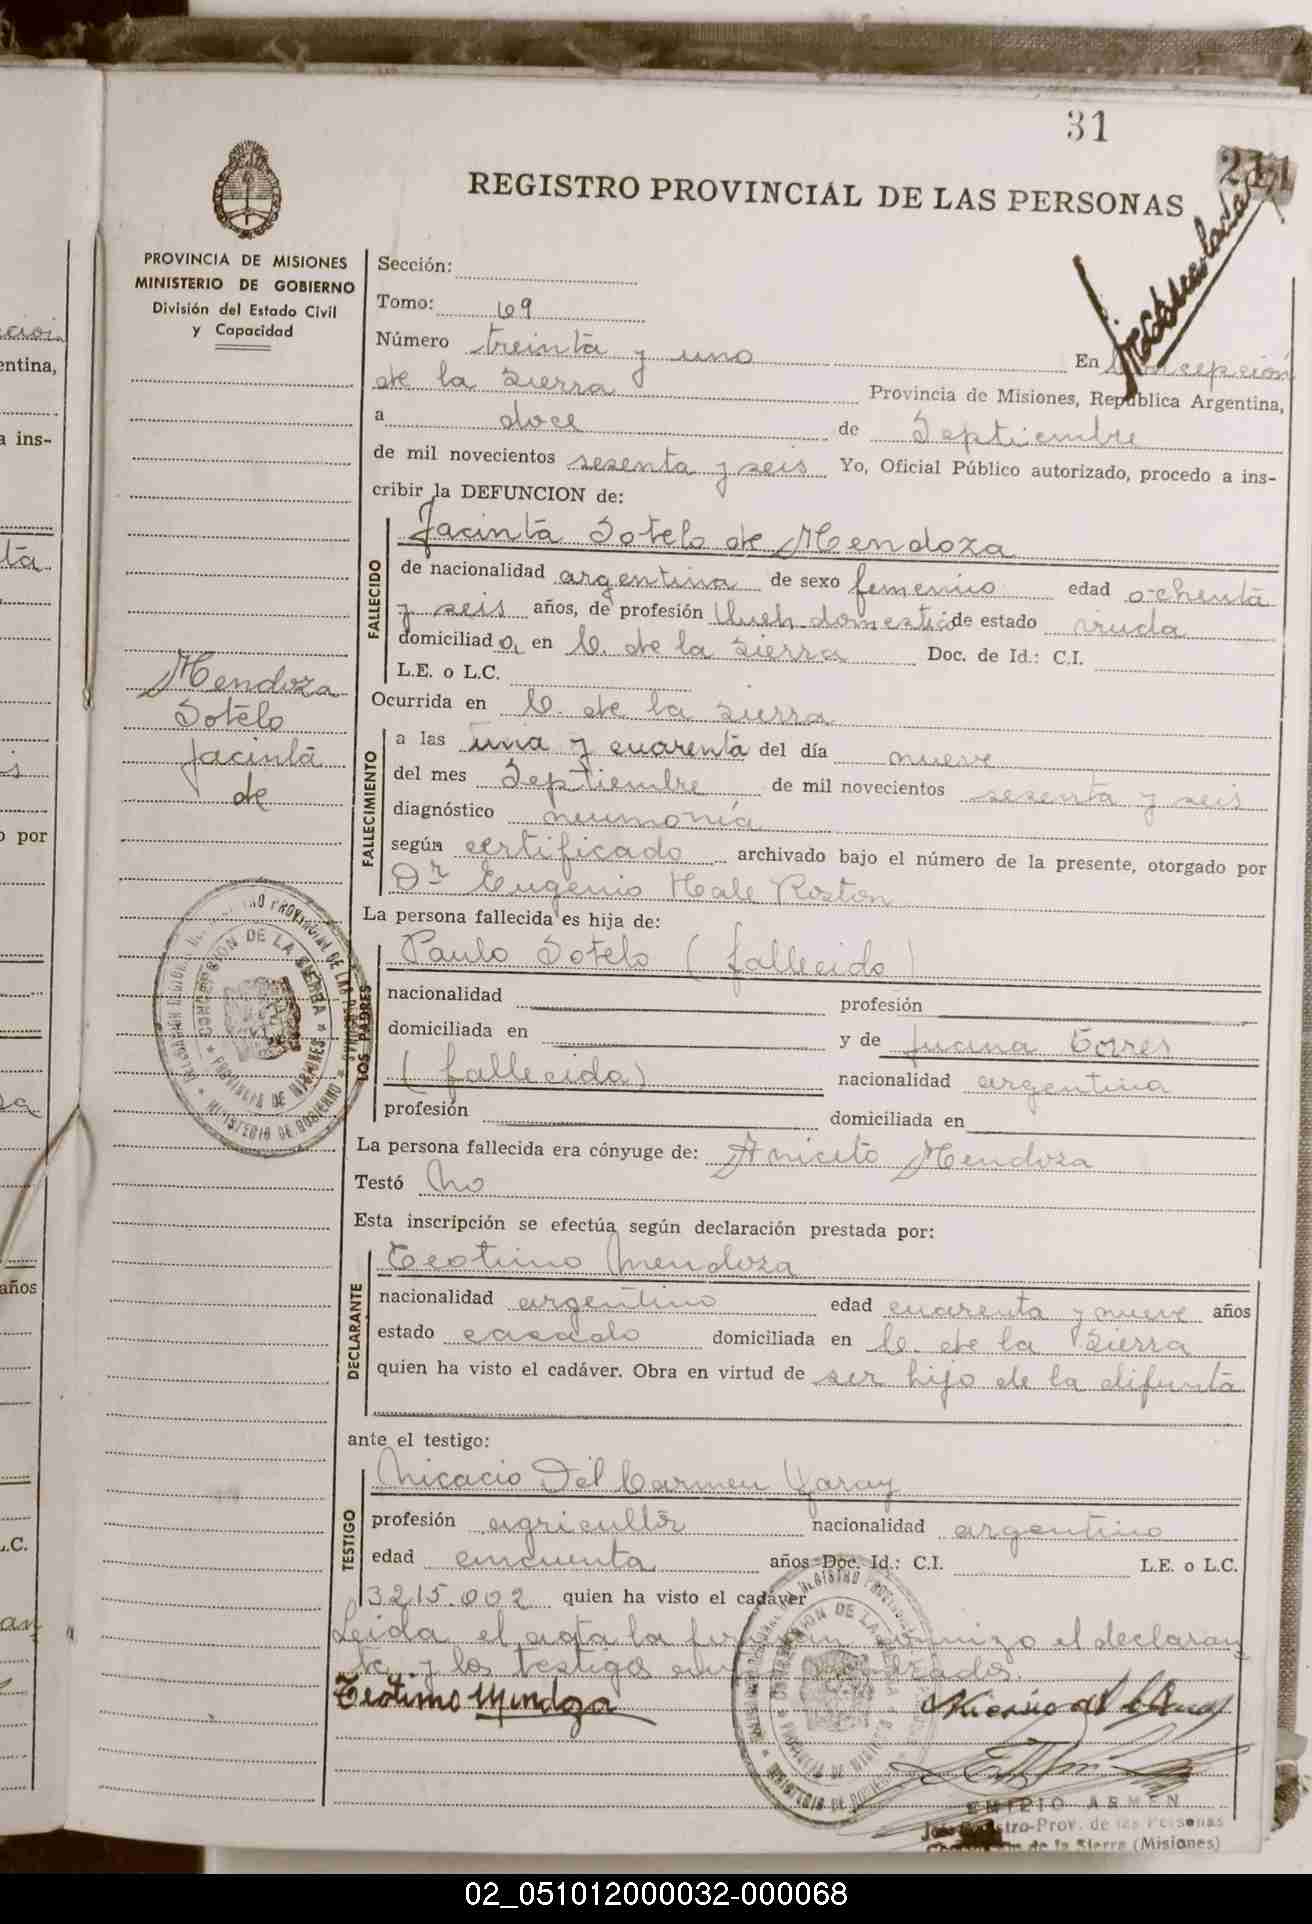 31
211
REGISTRO PROVINCIAL DE LAS PERSONAS
PROVINCIA DE MISIONES
MINISTERIO DE GOBIERNO
División del Estado Civil
y Capacidad
Mendoza
Sotelo
Jacinta
de
Sección:
Tomo: 69
Número treinta y uno En Concepción
de la Sierra Provincia de Misiones, República Argentina,
a doce de Septiembre
de mil novecientos sesenta y seis Yo, Oficial Público autorizado, procedo a ins-
cribir la DEFUNCION de:
FALLECIDO
Jacinta Sotelo de Mendoza
de nacionalidad argentina de sexo femenino edad ochenta
y seis años, de profesión Queh. domestico de estado viuda
domiciliad a en C. de la Sierra Doc. de Id.: C.I.
L.E. o L.C.
Ocurrida en C. de la Sierra
FALLECIMIENTO
a las una y cuarenta del día nueve
del mes Septiembre de mil novecientos sesenta y seis
diagnóstico neumonía
según certificado archivado bajo el número de la presente, otorgado por
Dr Eugenio Roston
La persona fallecida es hija de:
LOS PADRES
Paulo Sotelo (fallecido)
nacionalidad profesión
domiciliada en y de Lucina Torres
(fallecida) nacionalidad argentina
profesión domiciliada en
La persona fallecida era cónyuge de: Aniceto Mendoza
Testó No
Esta inscripción se efectúa según declaración prestada por:
DECLARANTE
Teotimo Mendoza
nacionalidad argentino edad cuarenta y nueve años
estado casado domiciliada en C. de la Sierra
quien ha visto el cadáver. Obra en virtud de ser hijo de la difunta
ante el testigo:
TESTIGO
Nicacio Del Carmen Garay
profesión agricultor nacionalidad argentino
edad cincuenta años Doc. Id.: C.I. L.E. o L.C.
3215.002 quien ha visto el cadáver
Leida el acta la firman conmigo el declaran
te y los testigos
Teotimo Mendoza
EMILIO ARMEN
Registro-Prov. de las Personas
de la Sierra (Misiones)
CONCEPCION DE LA SIERRA
PROVINCIA DE MISIONES
MINISTERIO DE GOBIERNO
02_051012000032-000068